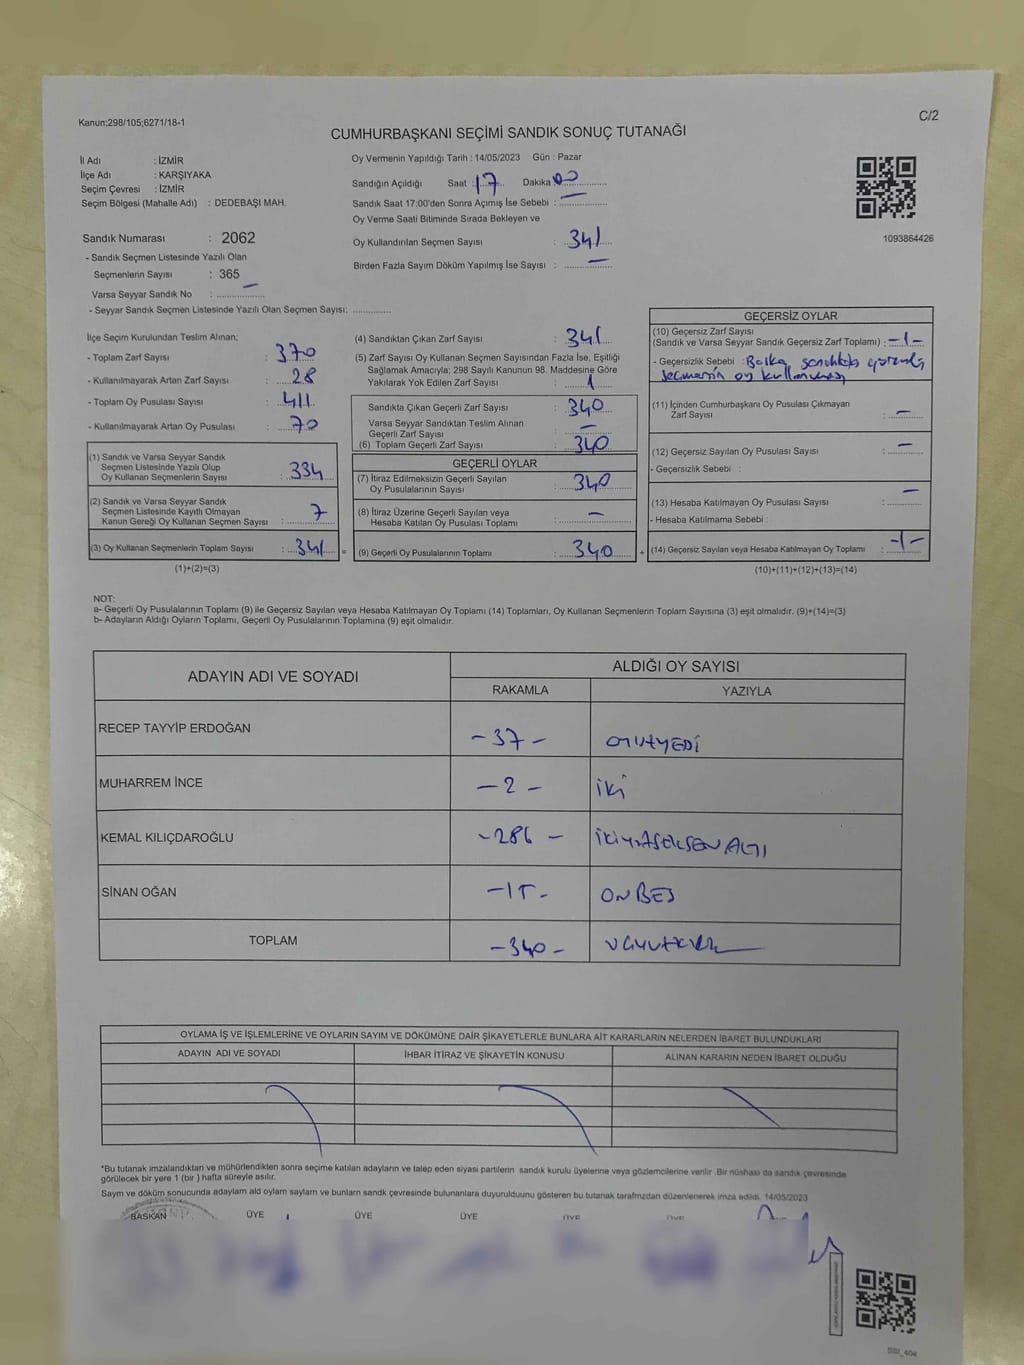 Kanun;298/105;6271/18-1
C/2
CUMHURBAŞKANI SEÇİMİ SANDIK SONUÇ TUTANAĞI
İl Adı : İZMİR
İlçe Adı : KARŞIYAKA
Seçim Çevresi : İZMİR
Seçim Bölgesi (Mahalle Adı) : DEDEBAŞI MAH.
Sandık Numarası : 2062
- Sandık Seçmen Listesinde Yazılı Olan
Seçmenlerin Sayısı : 365
Varsa Seyyar Sandık No : —
- Seyyar Sandık Seçmen Listesinde Yazılı Olan Seçmen Sayısı:
Oy Vermenin Yapıldığı Tarih : 14/05/2023 Gün : Pazar
Sandığın Açıldığı Saat : 17 Dakika 00
Sandık Saat 17:00'den Sonra Açımış İse Sebebi : —
Oy Verme Saati Bitiminde Sırada Bekleyen ve
Oy Kullandırılan Seçmen Sayısı : 341
Birden Fazla Sayım Döküm Yapılmış İse Sayısı : —
1093864426
İlçe Seçim Kurulundan Teslim Alınan;
- Toplam Zarf Sayısı : 370
- Kullanılmayarak Artan Zarf Sayısı : 28
- Toplam Oy Pusulası Sayısı : 411
- Kullanılmayarak Artan Oy Pusulası : 70
(1) Sandık ve Varsa Seyyar Sandık
Seçmen Listesinde Yazılı Olup
Oy Kullanan Seçmenlerin Sayısı : 334
(2) Sandık ve Varsa Seyyar Sandık
Seçmen Listesinde Kayıtlı Olmayan
Kanun Gereği Oy Kullanan Seçmen Sayısı : 7
(3) Oy Kullanan Seçmenlerin Toplam Sayısı : 341 =
(1)+(2)=(3)
(4) Sandıktan Çıkan Zarf Sayısı : 341
(5) Zarf Sayısı Oy Kullanan Seçmen Sayısından Fazla İse, Eşitliği
Sağlamak Amacıyla; 298 Sayılı Kanunun 98. Maddesine Göre
Yakılarak Yok Edilen Zarf Sayısı : 1
Sandıkta Çıkan Geçerli Zarf Sayısı : 340
Varsa Seyyar Sandıktan Teslim Alınan
Geçerli Zarf Sayısı : —
(6) Toplam Geçerli Zarf Sayısı : 340
GEÇERLİ OYLAR
(7) İtiraz Edilmeksizin Geçerli Sayılan
Oy Pusulalarının Sayısı : 340
(8) İtiraz Üzerine Geçerli Sayılan veya
Hesaba Katılan Oy Pusulası Toplamı : —
(9) Geçerli Oy Pusulalarının Toplamı : 340 +
GEÇERSİZ OYLAR
(10) Geçersiz Zarf Sayısı
(Sandık ve Varsa Seyyar Sandık Geçersiz Zarf Toplamı) : -1-
- Geçersizlik Sebebi : Başka sandıkta görevli
seçmenin oy kullanması
(11) İçinden Cumhurbaşkanı Oy Pusulası Çıkmayan
Zarf Sayısı : —
(12) Geçersiz Sayılan Oy Pusulası Sayısı : —
- Geçersizlik Sebebi :
(13) Hesaba Katılmayan Oy Pusulası Sayısı : —
- Hesaba Katılmama Sebebi :
(14) Geçersiz Sayılan veya Hesaba Katılmayan Oy Toplamı : -1-
(10)+(11)+(12)+(13)=(14)
NOT:
a- Geçerli Oy Pusulalarının Toplamı (9) ile Geçersiz Sayılan veya Hesaba Katılmayan Oy Toplamı (14) Toplamları, Oy Kullanan Seçmenlerin Toplam Sayısına (3) eşit olmalıdır. (9)+(14)=(3)
b- Adayların Aldığı Oyların Toplamı, Geçerli Oy Pusulalarının Toplamına (9) eşit olmalıdır.
ADAYIN ADI VE SOYADI ALDIĞI OY SAYISI
RAKAMLA YAZIYLA
RECEP TAYYİP ERDOĞAN -37- OTUZYEDİ
MUHARREM İNCE -2- İki
KEMAL KILIÇDAROĞLU -286- İKİYÜZSEKSENALTI
SİNAN OĞAN -15- ONBEŞ
TOPLAM -340- ÜÇYÜZKIRK
OYLAMA İŞ VE İŞLEMLERİNE VE OYLARIN SAYIM VE DÖKÜMÜNE DAİR ŞİKAYETLERLE BUNLARA AİT KARARLARIN NELERDEN İBARET BULUNDUKLARI
ADAYIN ADI VE SOYADI İHBAR İTİRAZ VE ŞİKAYETİN KONUSU ALINAN KARARIN NEDEN İBARET OLDUĞU
*Bu tutanak imzalandıktan ve mühürlendikten sonra seçime katılan adayların ve talep eden siyasi partilerin sandık kurulu üyelerine veya gözlemcilerine verilir .Bir nüshası da sandık çevresinde
görülecek bir yere 1 (bir ) hafta süreyle asılır.
Sayım ve döküm sonucunda adayların ald oyların sayların ve bunların sandk çevresinde bulunanlara duyurulduunu gösteren bu tutanak tarafmzdan düzenlenerek imza edildi. 14/05/2023
BAŞKAN ÜYE ÜYE ÜYE ÜYE ÜYE